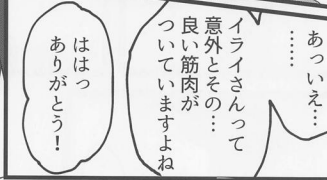 あっいえ…
……
イライさんって
意外とその…
良い筋肉が
ついていますよね
ははっ
ありがとう！